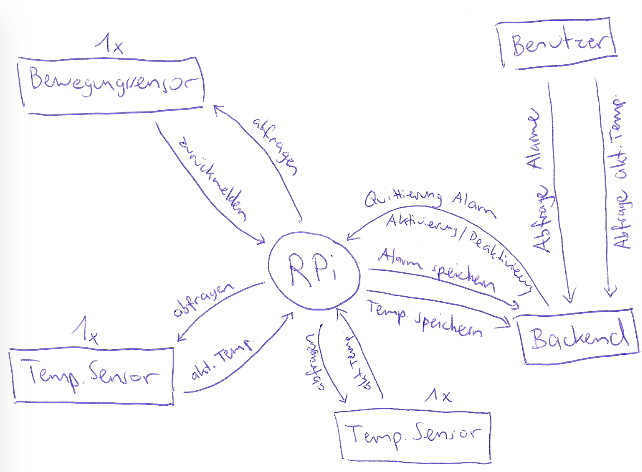 1x
Bewegungssensor
Benutzer
abfragen
zurückmelden
Abfrage Alarme
Abfrage akt. Temp.
Quittierung Alarm
Aktivierung/Deaktivierung
RPi
Alarm speichern
Temp. speichern
Backend
abfragen
akt. Temp.
1x
Temp. Sensor
abfragen
akt. Temp.
1x
Temp. Sensor